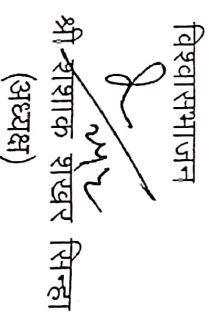 विश्वासभाजन
श्री शशांक शेखर सिन्हा
(अध्यक्ष)